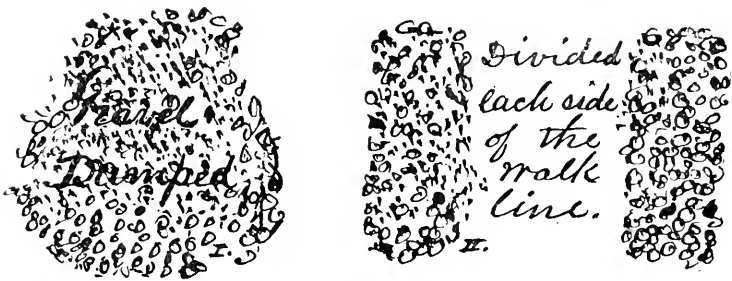 Gravel
Dumped
I.
Divided
each side
of the
walk
line.
II.